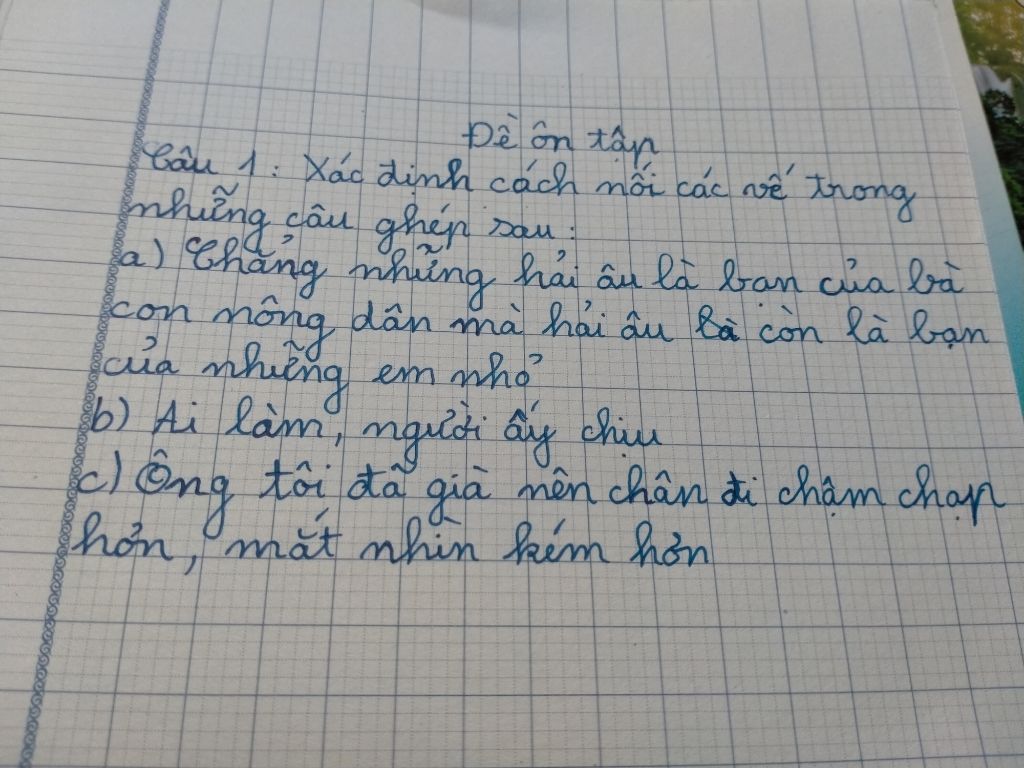 Đề ôn tập
Câu 1: Xác định cách nối các vế trong
những câu ghép sau:
a) Chẳng những hải âu là bạn của bà
con nông dân mà hải âu là còn là bạn
của những em nhỏ
b) Ai làm, người ấy chịu
c) Ông tôi đã già nên chân đi chậm chạp
hơn, mắt nhìn kém hơn